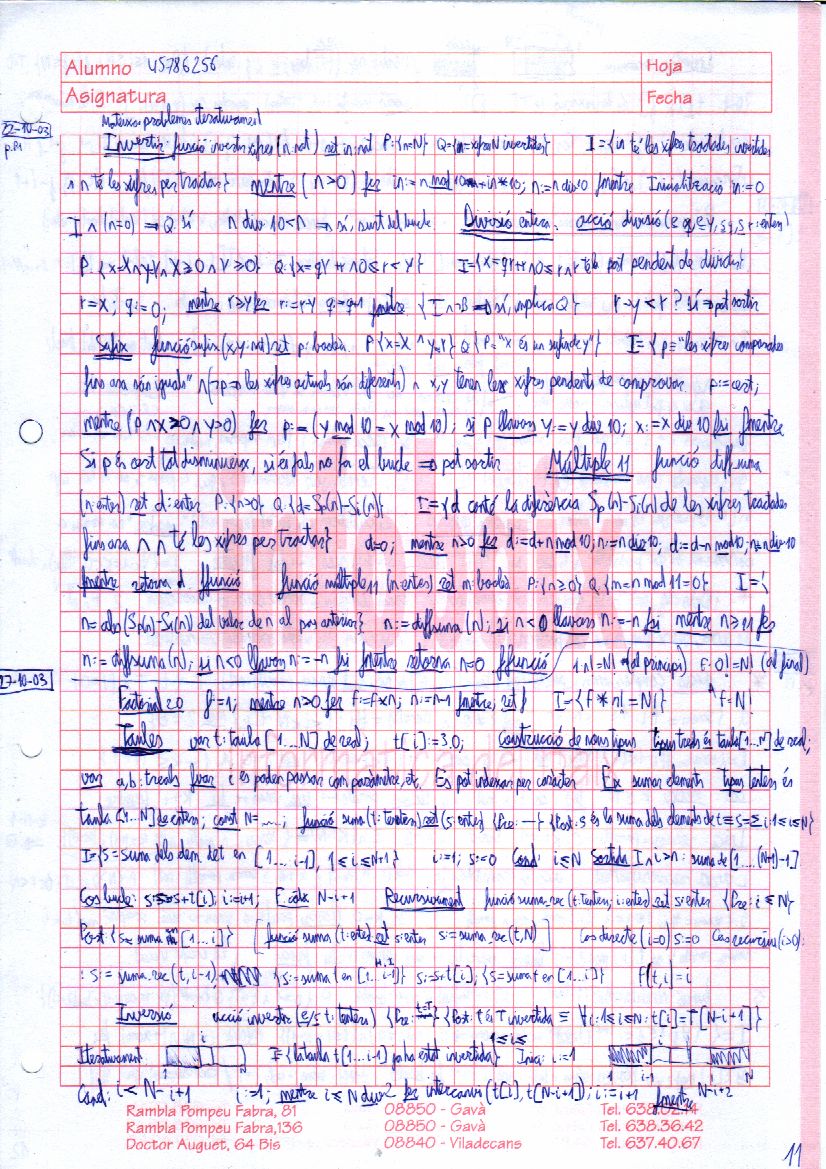 Alumno 45786256 Hoja
Asignatura Fecha
Mateixos problemes iterativament
22-10-03
p.81
Invertir: funció invertirxifres (n:nat) ret in:nat P:{n=N} Q={in=xifres N invertides} I={in té les xifres tractades invertides
∧ n té les xifres per tractar} mentre (n>0) fer in:= n mod 10 + in*10; n:=n div 10 fmentre Inicialització in:=0
I ∧ (n=0) ⇒ Q sí n div 10<n ⇒ sí, surt del bucle Divisió entera. acció divisió (e x, e y, s q, s r: enters)
P:{x=X ∧ y=Y ∧ X≥0 ∧ Y>0} Q:{x=qY+r ∧ 0≤r<Y} I={x=qY+r ∧ 0≤r ∧ r té la part pendent de dividir}
r=x; q:=0; mentre r≥y fer r:=r-y q:=q+1 fmentre {I∧¬B ⇒ sí, implica Q} r-y<r? sí ⇒ pot sortir
Sufix funció sufix (x,y:nat) ret p:booleà P{x=X ∧ y=Y} Q{P="x és un sufix de y"} I={p="les xifres comparades
fins ara són iguals" ∧ (¬p ⇒ les xifres actuals són diferents) ∧ x,y tenen les xifres pendents de comprovar p:=cert;
mentre (p ∧ x>0 ∧ y>0) fer p:=(y mod 10 = x mod 10); si p llavors y:=y div 10; x:=x div 10 fsi fmentre
Si p és cert tot disminueix, si és fals no fa el bucle ⇒ pot sortir Múltiple 11 funció diffsuma
(n:enter) ret d:enter P:{n≥0} Q:{d=Sp(n)-Si(n)} I={d conté la diferència Sp(n)-Si(n) de les xifres tractades
fins ara ∧ n té les xifres per tractar} d=0; mentre n>0 fer d:=d+n mod 10; n:=n div 10; d:=d-n mod 10; n:=n div 10
fmentre retorna d ffunció funció múltiple11 (n:enter) ret m:booleà P:{n≥0} Q:{m=n mod 11=0} I={
n=abs(Sp(n)-Si(n)) del valor de n al pas anterior} n:=diffsuma(n); si n<0 llavors n:=-n fsi mentre n≥11 fer
n:=diffsuma(n); si n<0 llavors n:=-n fsi fmentre retorna n=0 ffunció 1·n!=N! (al principi) f·0!=N! (al final)
27-10-03
Factorial 2.0 f=1; mentre n>0 fer f:=f*n; n:=n-1 fmentre; ret f I={f*n!=N!} f=N!
Taules var t:taula [1...N] de real; t[i]:=3.0; Construcció de nous tipus tipus treals és taula[1...N] de real;
var a,b:treals fvar i es poden passar com paràmetre, etc. Es pot indexar per caràcter Ex sumar elements tipus tenters és
taula [1...N] de enters; const N=...; funció suma (t:tenters) ret (s:enter) {Pre: —} {Post: s és la suma dels elements de t ≡ s=Σ i:1≤i≤N}
I={s=suma dels elem. de t en [1...i-1], 1≤i≤N+1} i:=1; s:=0 Cond: i≤N Sortida I∧i>n: suma de [1...(N+1)-1]
Cos bucle: s:=s+t[i]; i:=i+1; F. cota N-i+1 Recursivament funció suma_rec (t:tenters; i:enter) ret s:enter {Pre: i≤N}
Post {s=suma [1...i]} [funció suma (t:enter) ret s:enter s:=suma_rec (t,N)] Cas directe (i=0) s:=0 Cas recursiu (i>0):
: s:=suma_rec (t,i-1) {s:=suma t en [1...i-1]} H.I s:=s+t[i]; {s=suma t en [1...i]} f(t,i)=i
Inversió acció invertir (e/s t:tenters) {Pre: t=T} {Post: t és T invertida ≡ ∀i:1≤i≤N: t[i]=T[N-i+1]}
Iterativament 1 i N I≡{la taula t[1...i-1] ja ha estat invertida} 1≤i≤ Inici: i:=1 1 i-1 N
Cond: i<N-i+1 i:=1; mentre i≤N div 2 fer intercanvi (t[i], t[N-i+1]); i:=i+1 fmentre N-i+2
Rambla Pompeu Fabra, 81 08850 - Gavà Tel. 638.02.14
Rambla Pompeu Fabra,136 08850 - Gavà Tel. 638.36.42
Doctor Auguet, 64 Bis 08840 - Viladecans Tel. 637.40.67
11